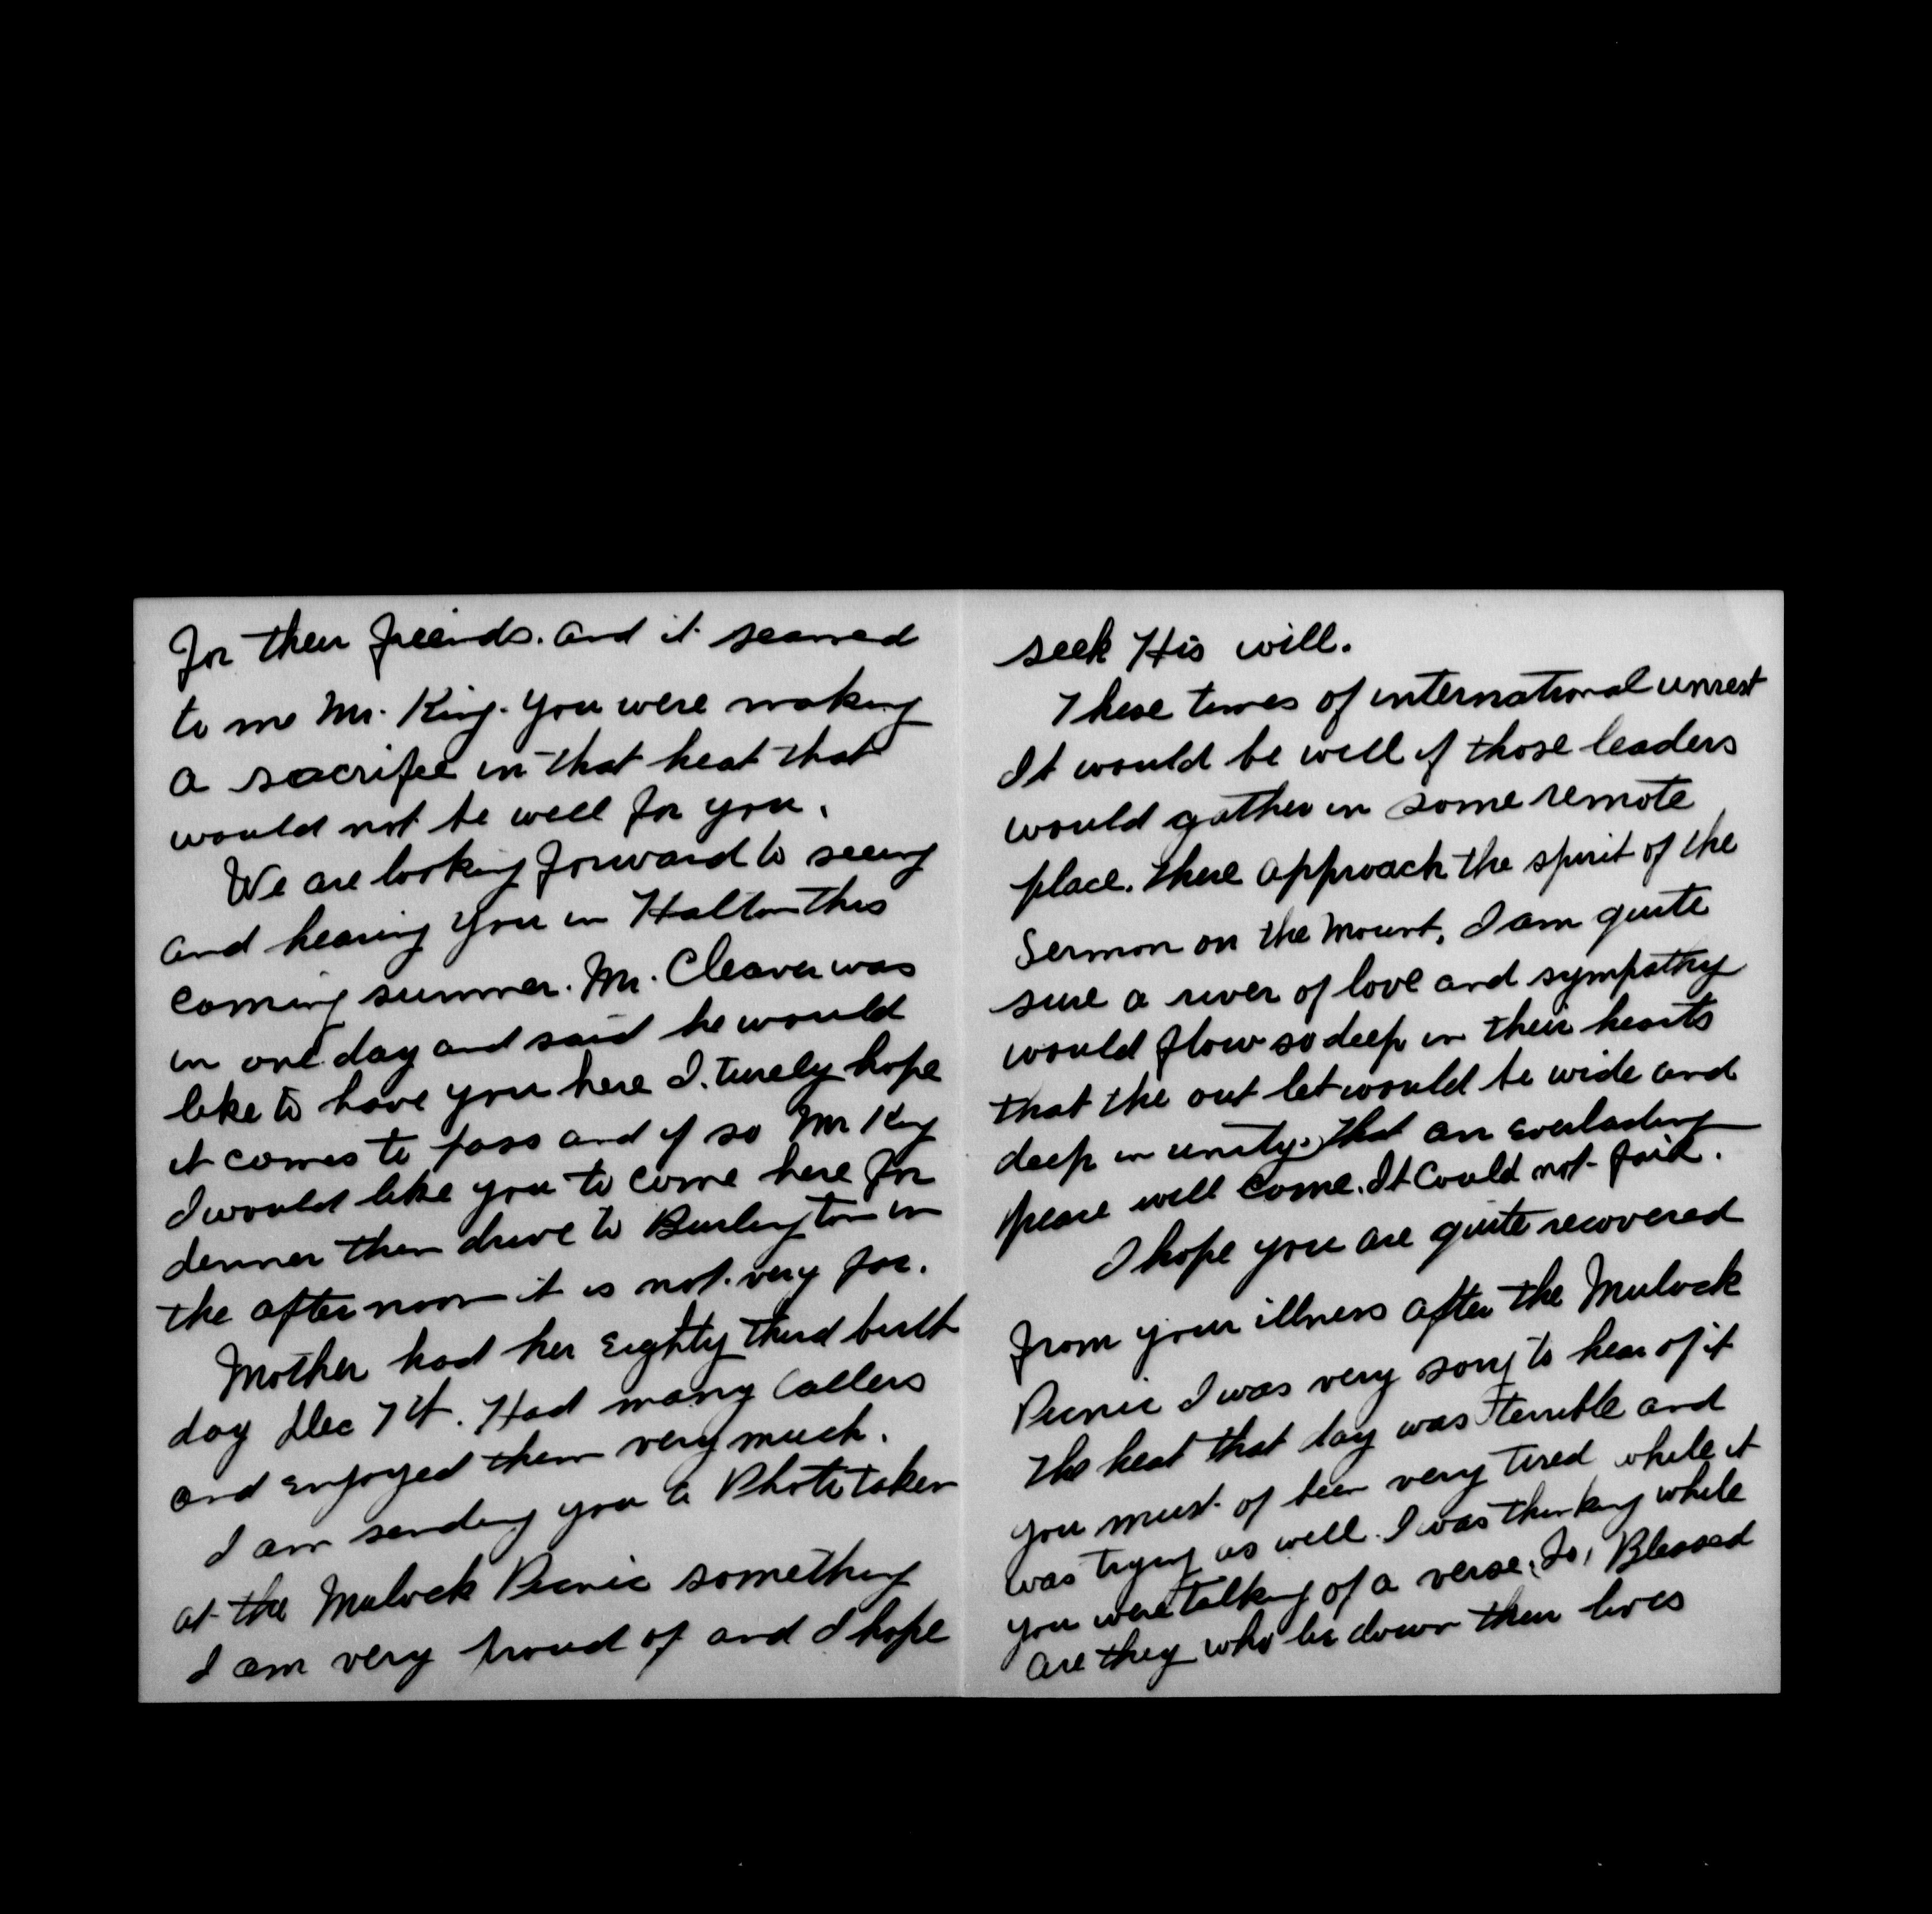 For their freinds. and it seamed
to me Mr. King. You were making
a sacrifee in that heat that
would not be well for you.
We are looking forward to seeing
and hearing you in Halton this
coming summer. Mr. Cleaver was
in one day and said he would
like to have you here I. turely hope
it comes to pass and if so Mr King
I would like you to come here for
denner then drive to Burlington in
the after noon it is not very far.
Mother had her Eighty third birth
day Dec 7th. Had many Callers
and enjoyed them very much.
I am sending you a Photo taken
at the Mulock Picnic something
I am very proud of and I hope
seek His will.
These times of international unrest
It would be well if those leaders
would gather in some remote
place. there approach the spirit of the
Sermon on the Mount, I am quite
sure a river of love and sympathy
would flow so deep in their hearts
that the out let would be wide and
deep in unity. that an everlasting
peace will come. It Could not fail.
I hope you are quite recovered
from your illness after the Mulock
Picnic I was very sorry to hear of it
The heat that day was terrible and
you must of been very tired while it
was trying as well. I was thinking while
you were talking of a verse, Blessed
are they who lie down their lives